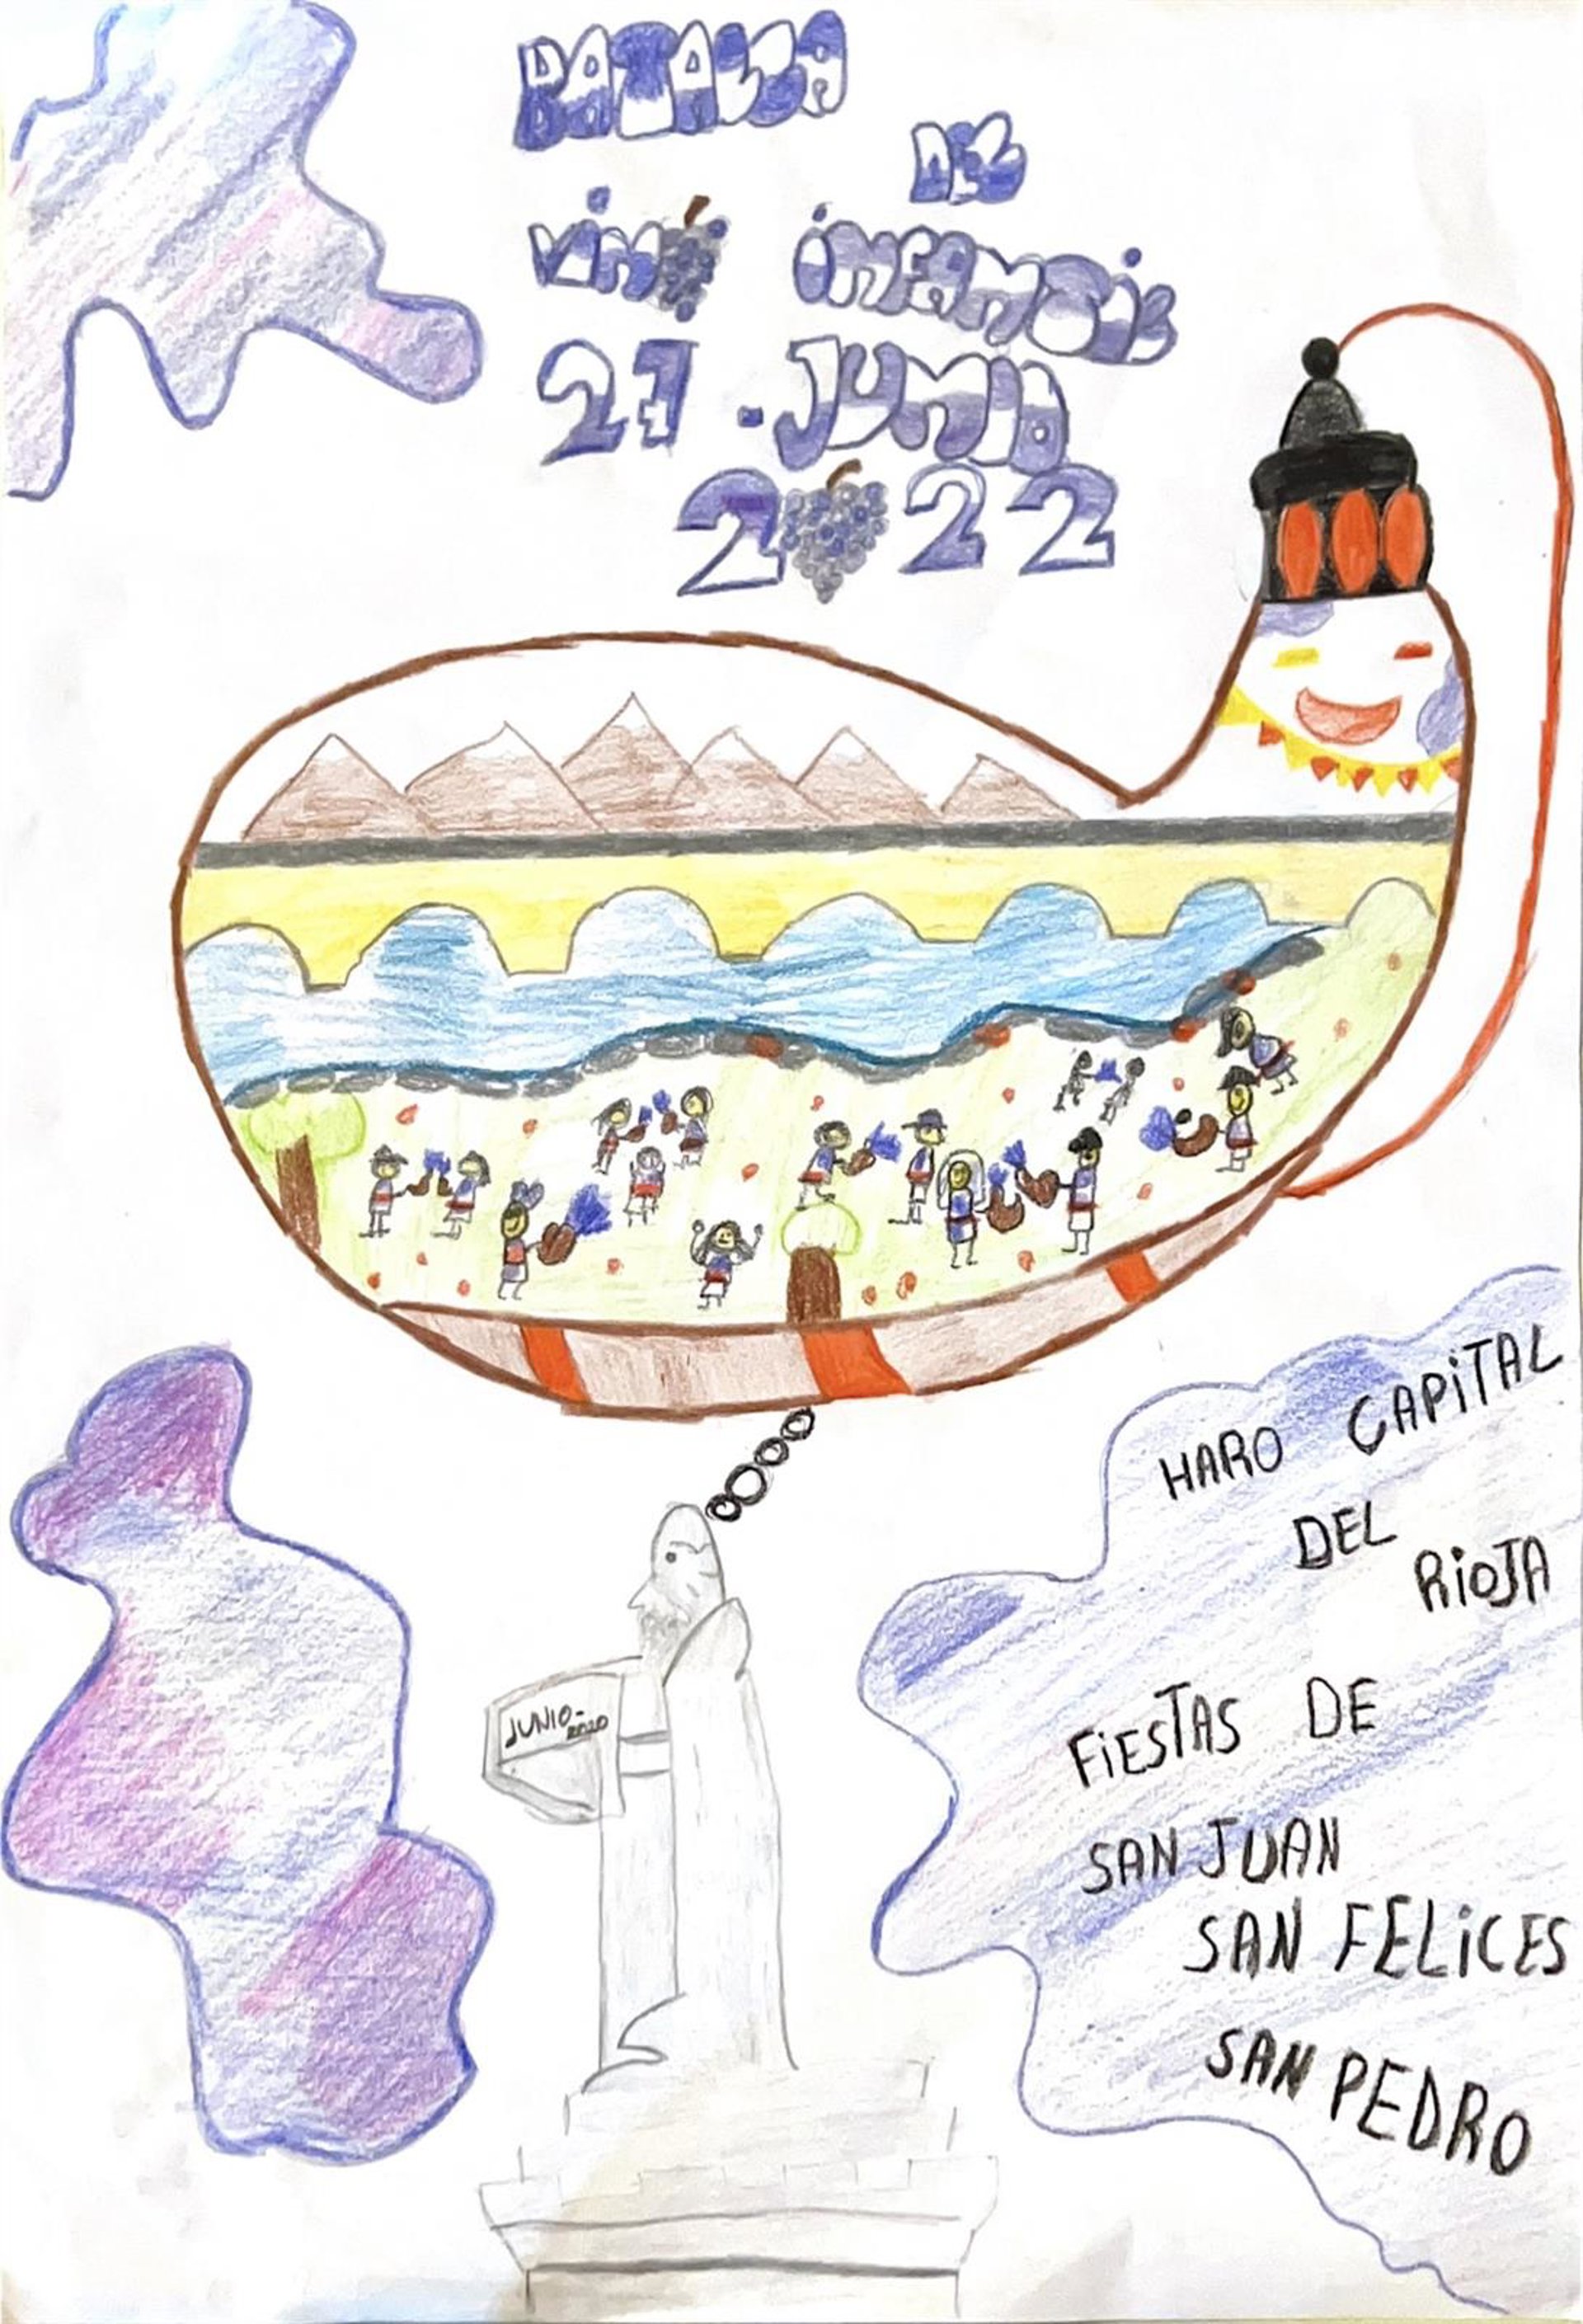 BATALLA
DEL
VINO INFANTIL
27.JUNIO
2022
HARO CAPITAL
DEL
RIOJA
JUNIO-
2020
FIESTAS DE
SAN JUAN
SAN FELICES
SAN PEDRO